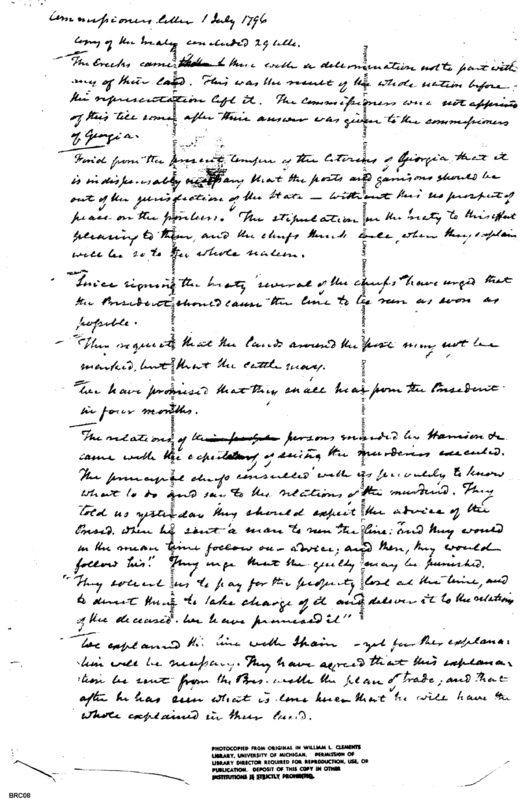 Commissioners letter 1 July 1796
Copy of the treaty concluded 29 ulto.
The Creeks came there with a determination not to part with
any of their land. This was the result of the whole nation before
this representation left it. The commissioners were not apprised
of this till some after their answer was given to the commissioners
of Georgia.
Find from the present temper of the citizens of Georgia that it
is indispensably necessary that the posts and garrisons should be
out of the jurisdiction of the State — without this no prospect of
peace on the frontiers. The stipulation in the treaty to this effect
pleasing to them, and the chiefs think will, when they explain
will be so to the whole nation.
Since signing the treaty several of the chiefs have urged that
the President should cause the line to be run as soon as
possible.
They request that the lands around the post may not be
marked, but that the cattle may.
We have promised that they shall hear from the President
in four months.
The relations of the persons murdered by Harrison &c
came with the expectation of seeing the murderers executed.
The principal chiefs consulted with us privately to know
what to do and say to the relations of the murdered. They
told us yesterday they should expect the advice of the
Presid. when he sent a man to run the line: "and they would
in the mean time follow our advice; and then, they would
follow his." They urge that the guilty may be punished.
"They solicit us to pay for the property lost at the time, and
to direct to take charge of it and deliver it to the relations
of the deceased. We have promised it"
We explained the line with Spain — yet further explana-
tion will be necessary. They have agreed that this explana-
tion be sent from the Pres. with the plan of trade; and that
after he has seen what is done that he will have the
whole explained in their land.
PHOTOCOPIED FROM ORIGINAL IN WILLIAM L. CLEMENTS
LIBRARY, UNIVERSITY OF MICHIGAN. PERMISSION OF
LIBRARY DIRECTOR REQUIRED FOR REPRODUCTION, USE, OR
PUBLICATION. DEPOSIT OF THIS COPY IN OTHER
INSTITUTIONS IS STRICTLY PROHIBITED.
BRC08